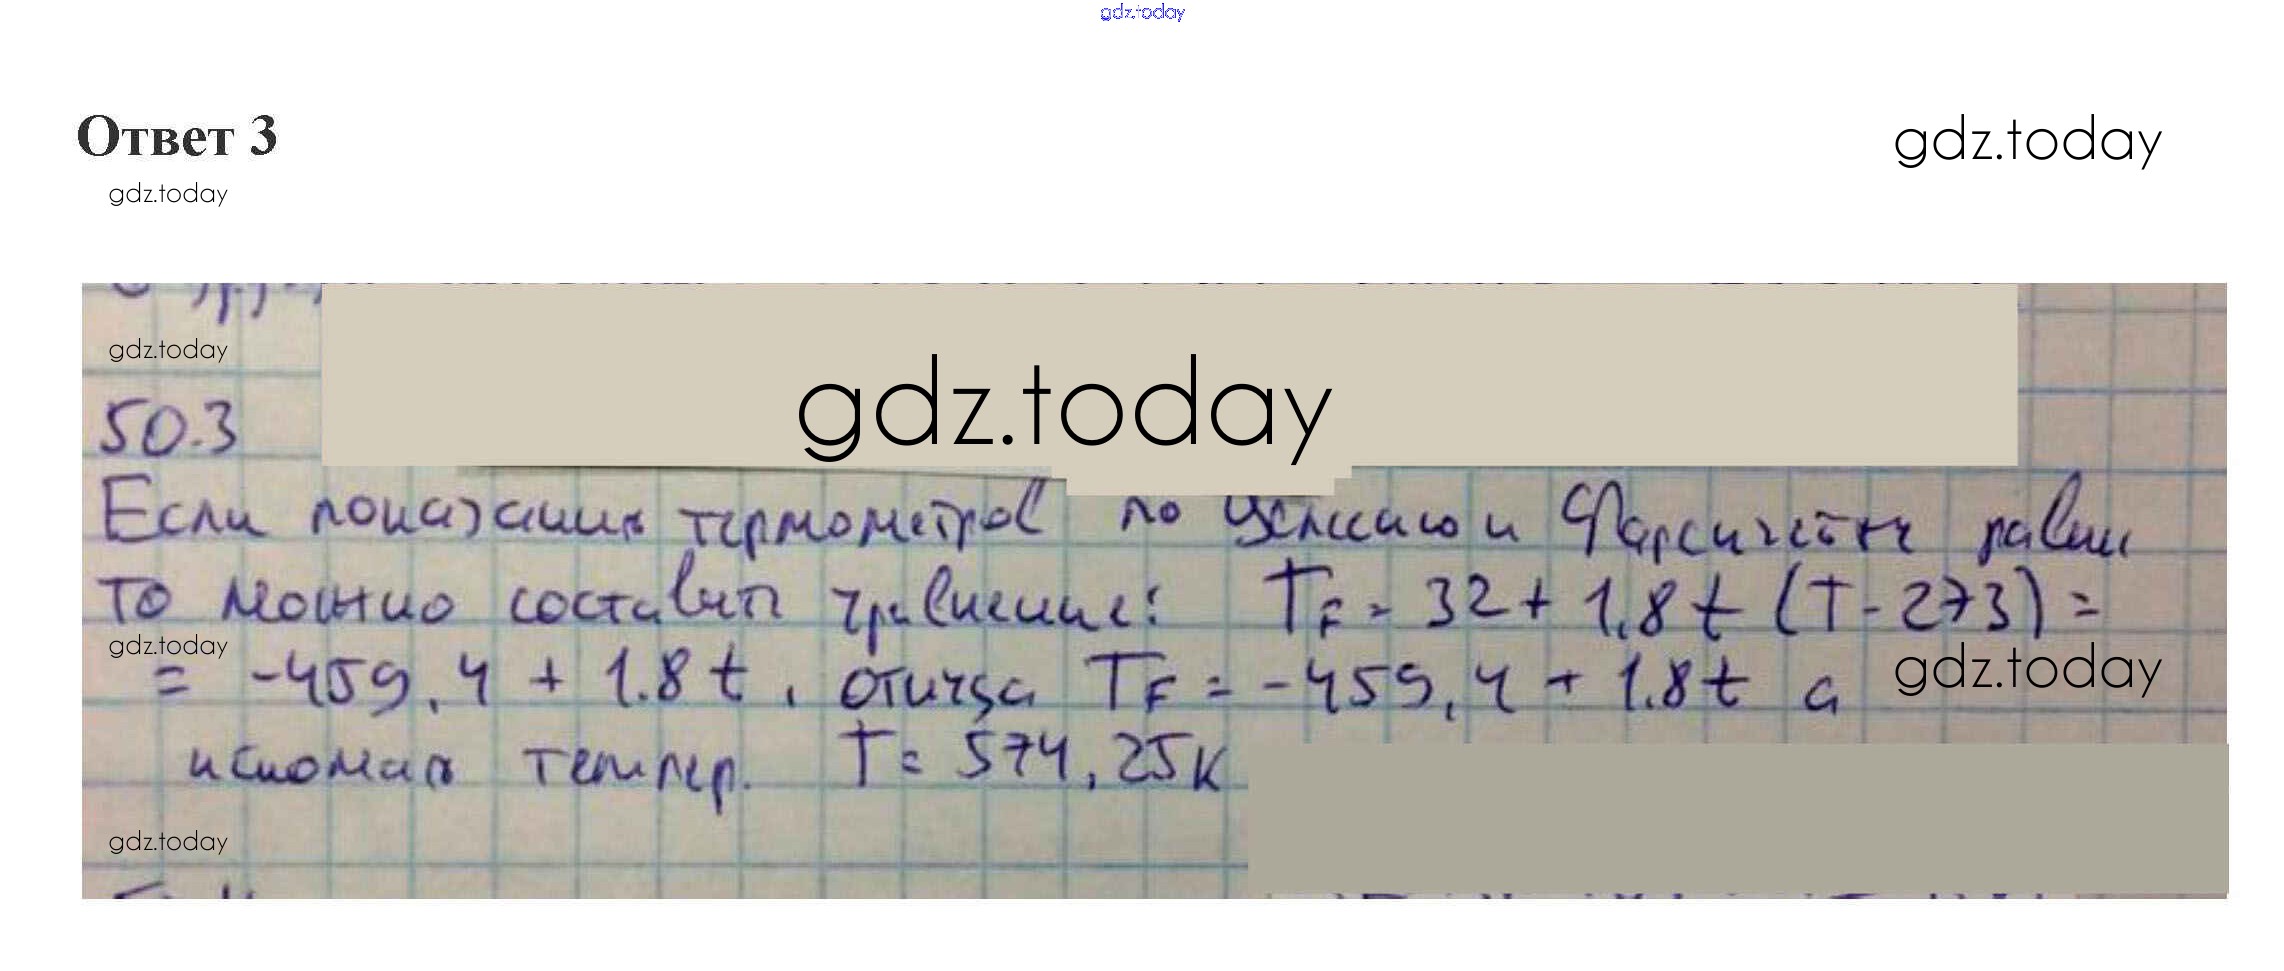 gdz.today
Ответ 3
gdz.today
gdz.today
gdz.today
gdz.today
50.3
Если показания термометров по Цельсию и Фаренгейту равны
то можно составить уравнение: T_F = 32 + 1.8 t (T - 273) =
gdz.today
= -459,4 + 1.8 t, откуда T_F = -459,4 + 1.8 t а
gdz.today
искомая темпер. T = 574,25K
gdz.today